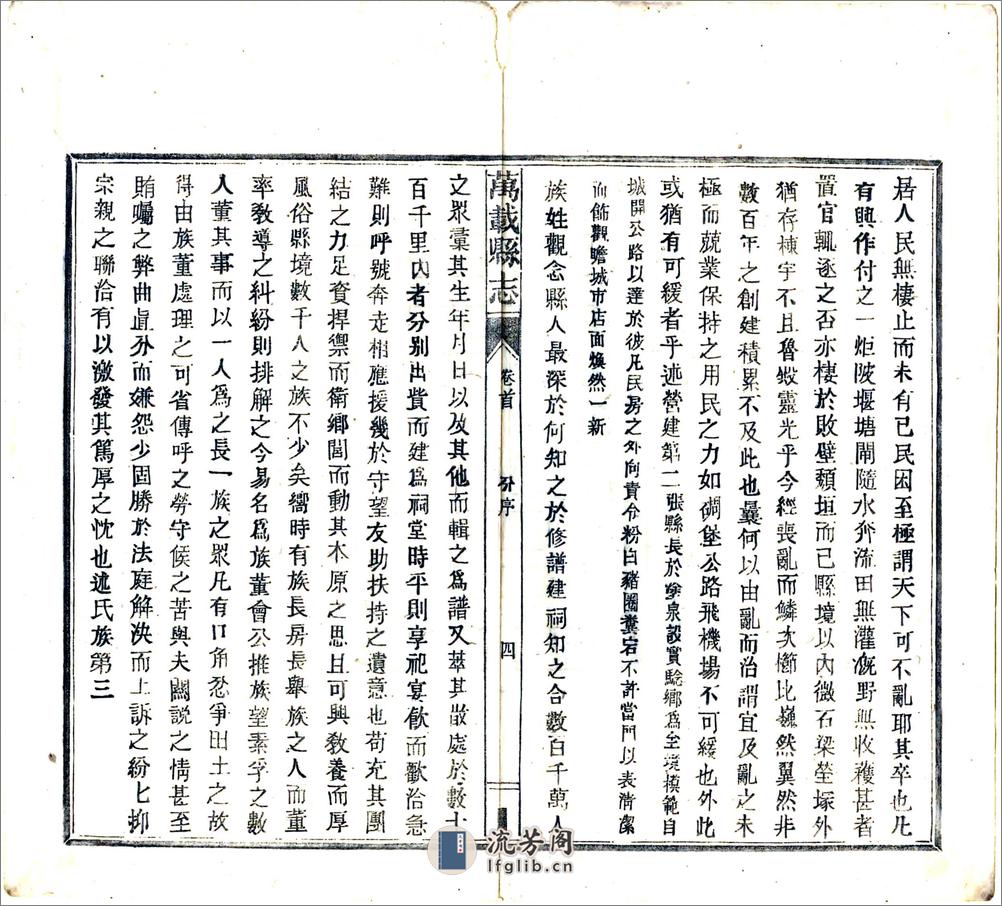 居人民無棲止而未有已民困至極謂天下可不亂耶其卒也凡
有興作付之一炬陂堰塘閘隨水奔流田無灌溉野無收穫甚者
置官輒逐之否亦棲於敗壁頹垣而已縣境以內微石梁塋塚外
猶存棟宇不且魯殿靈光乎今經喪亂而鱗次櫛比巍然翼然非
數百年之創建積累不及此也曩何以由亂而治謂宜及亂之未
極而兢業保持之用民之力如碉堡公路飛機場不可緩也外此
或猶有可緩者乎述營建第二張縣長於孽泉設實驗鄉爲全境模範自
城開公路以達於彼凡民房之外向賁分粉白豬圈糞窖不許當門以表清潔
而飾觀瞻城市店面煥然一新
族姓觀念縣人最深於何知之於修譜建祠知之合數百千萬人
萬載縣志
卷首
分序
四
之眾彙其生年月日以及其他而輯之爲譜又萃其散處於數十
百千里內者分別出貲而建爲祠堂時平則享祀宴飲而歡洽急
難則呼號奔走相應援幾於守望友助扶持之遺意也苟充其團
結之力足資捍禦而衛鄉閭而動其木原之思且可興教養而厚
風俗縣境數千人之族不少矣嚮時有族長房長舉族之人而董
率教導之糾紛則排解之今易名爲族董會公推族望素孚之數
人董其事而以一人爲之長一族之眾凡有口角忿爭田土之故
得由族董處理之可省傳呼之勞守候之苦與夫關說之情甚至
賄囑之弊曲直分而嫌怨少固勝於法庭解決而上訴之紛乜抑
宗親之聯洽有以激發其篤厚之忱也述氏族第三
流芳阁
lfglib.cn